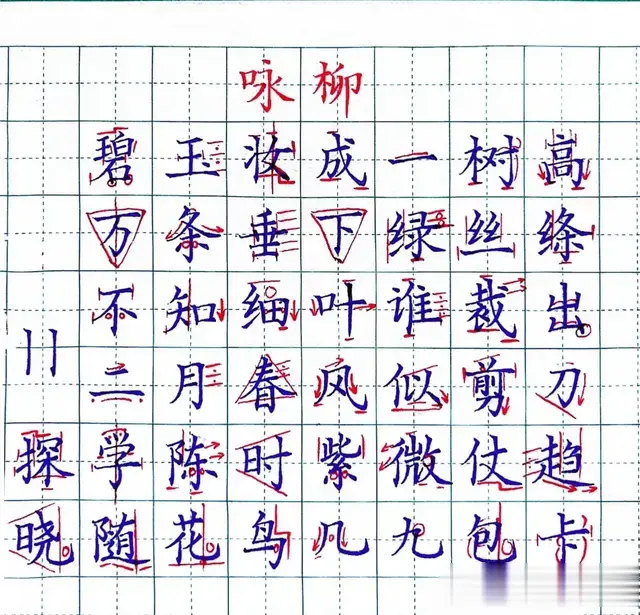 咏柳
碧玉妆成一树高
万条垂下绿丝绦
不知细叶谁裁出
二月春风似剪刀
探学陈时紫微仗趋
晓随花鸟几九包卡